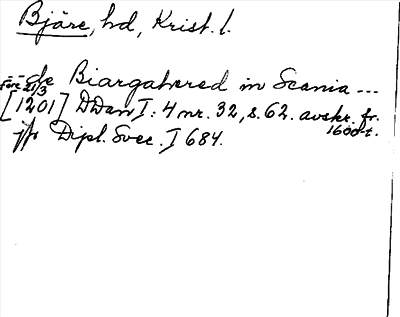 Bjäre, hd, Krist. l.
--- de Biargahered in Scania ---
före 21/3
[1201] DDan I: 4 nr. 32, s. 62. avskr. fr.
1600-t.
jfr Dipl. Svec. I 684.